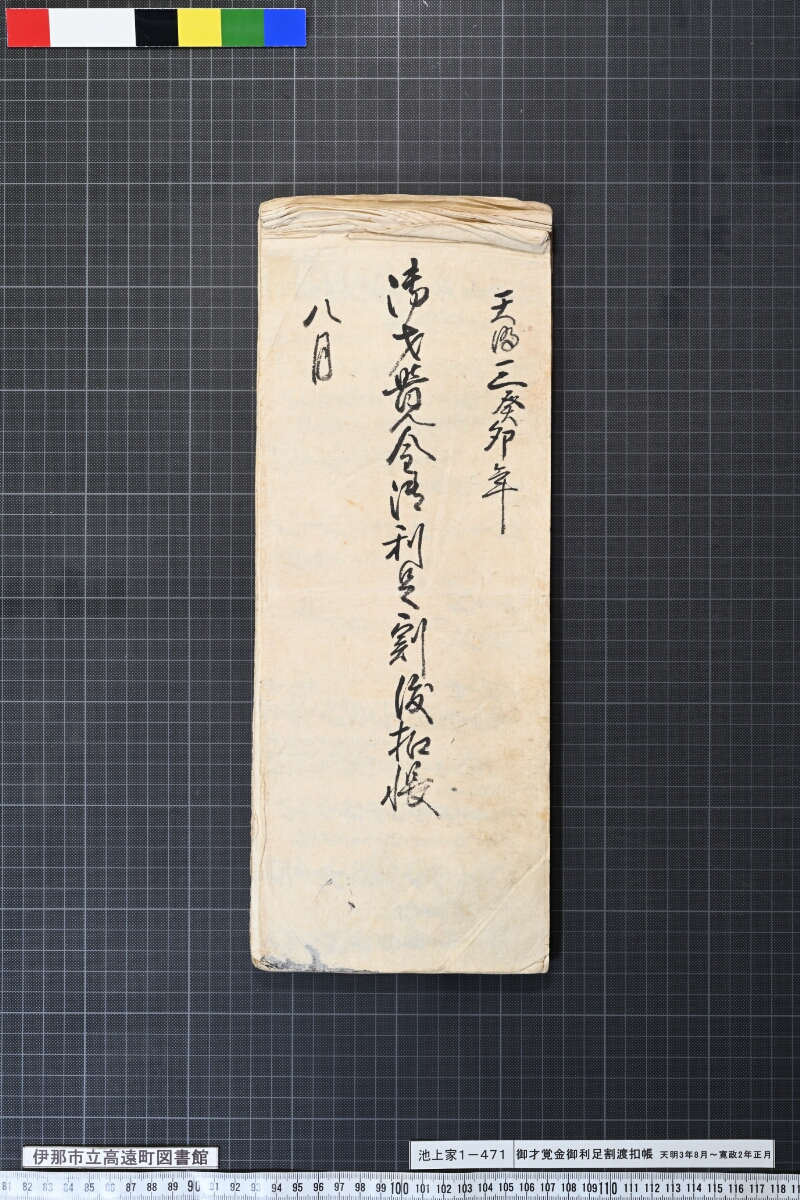 天明三癸卯年
御才覚金御利足割渡扣帳
八月
伊那市立高遠町図書館
池上家1-471 御才覚金御利足割渡扣帳 天明3年8月~寛政2年正月
81 82 83 84 85 86 87 88 89 90 91 92 93 94 95 96 97 98 99 100 101 102 103 104 105 106 107 108 109 110 111 112 113 114 115 116 117 118